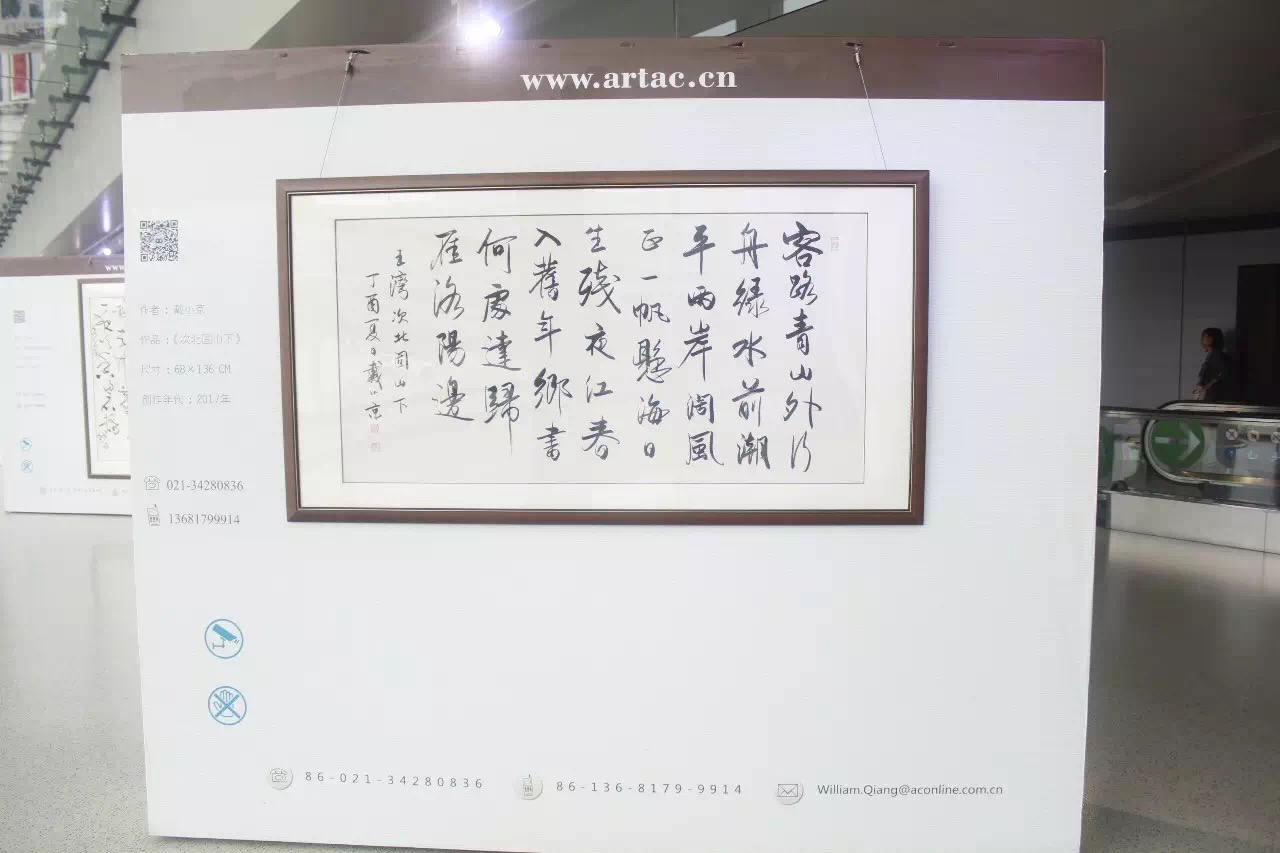 www.artac.cn
客路青山外行
舟绿水前潮
平两岸阔风
正一帆懸海日
生残夜江春
入舊年鄉書
何處達歸
雁洛陽邊
王灣次北固山下
丁酉夏日戴小京
作者：戴小京
作品：《次北固山下》
尺寸：68×136 CM
创作年代：2017年
021-34280836
13681799914
86-021-34280836
86-136-8179-9914
William.Qiang@aconline.com.cn